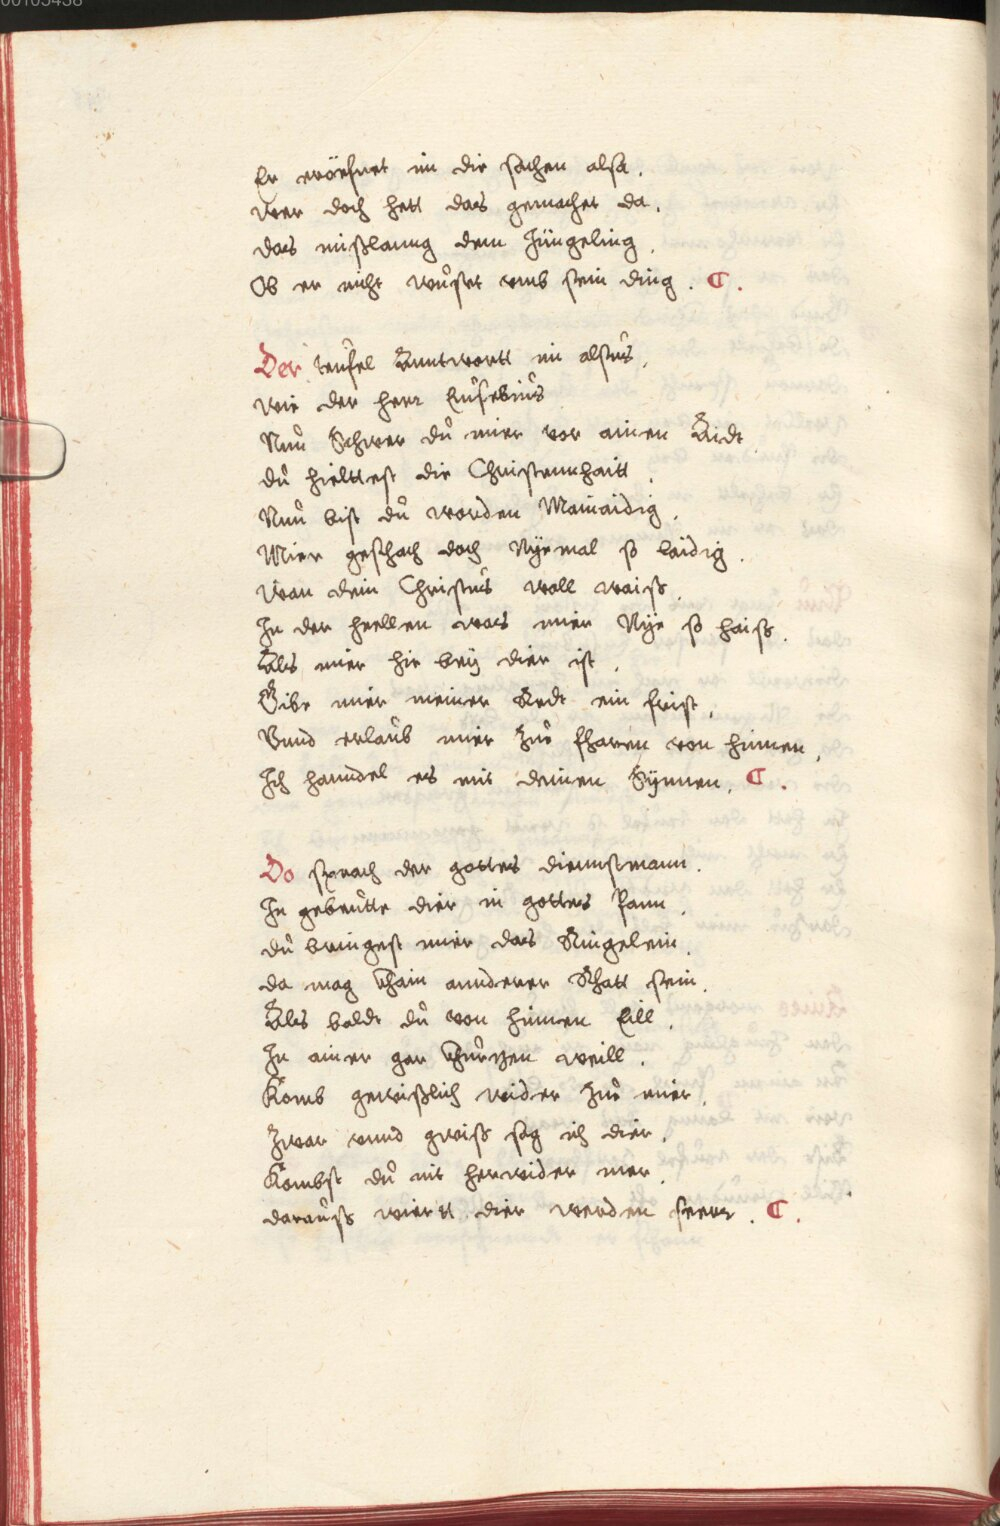 00105438
Er eröfnet im die sachen also.
wer doch hett das gemachet da.
das mißlanng dem Jüngeling.
Ob er nicht wuͦstet vmb sein ding. C.
Der teüfel Anntwortt im alsus.
wie der herr Eusebius
Nuͦ Schwer duͦ mier vor ainen Aidt
duͦ hielttest die Christennhaitt.
Nuͦ bist duͦ worden Mainaidig.
Mier geschach doch Nÿemal so laidig.
wan dein Christus woll waiß.
In der hellen was mier Nÿe so haiß.
Als mier hie beÿ dier ist.
Gibe mier meiner Redt ein frist,
Vnnd erlaub mier zuͦ fharen von hinnen,
Ich hanndel es mit deinen Sÿnnen, C.
Do sprach der gottes diennstmann.
Ich gebeutte dier in gottes Pann.
duͦ bringest mier das Ringelein.
da mag khain annderer Rhatt sein.
Als baldt duͦ von hinnen Eill.
In ainer gar khurtzen weill.
Komb gewißlich wider zuͦ mier.
Zwar vnnd gwiß sag ich dier.
Kombst duͦ nit herwider mer.
darauß wiertt dier werden seerr. C.